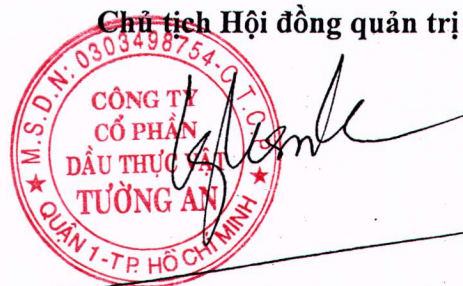 Chủ tịch Hội đồng quản trị
M.S.D.N: 0303498754-C.T.C.P
CÔNG TY
CỔ PHẦN
DẦU THỰC VẬT
TƯỜNG AN
QUẬN 1-TP. HỒ CHÍ MINH